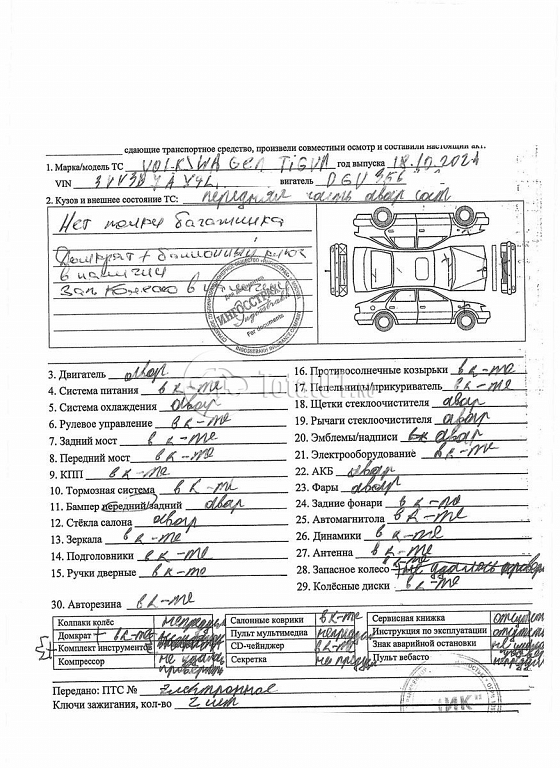 сдающие транспортное средство, произвели совместный осмотр и составили настоящий акт.
1. Марка/модель ТС VOLKSWAGEN TIGUAN год выпуска 18.10.2021
VIN двигатель DGV 356
2. Кузов и внешнее состояние ТС: передняя часть авар сост
Нет полки багажника
Домкрат + баллонный ключ
в наличии
Зап колесо в
ИНГОССТРАХ
Ingosstrakh
For documents
3. Двигатель авар
4. Система питания в к-те
5. Система охлаждения авар
6. Рулевое управление в к-те
7. Задний мост в к-те
8. Передний мост в к-те
9. КПП в к-те
10. Тормозная система в к-те
11. Бампер передний/задний авар
12. Стёкла салона авар
13. Зеркала в к-те
14. Подголовники в к-те
15. Ручки дверные в к-те
16. Противосолнечные козырьки в к-те
17. Пепельницы/прикуриватель в к-те
18. Щетки стеклоочистителя авар
19. Рычаги стеклоочистителя авар
20. Эмблемы/надписи авар
21. Электрооборудование в к-те
22. АКБ авар
23. Фары авар
24. Задние фонари в к-те
25. Автомагнитола в к-те
26. Динамики в к-те
27. Антенна в к-те
28. Запасное колесо не удалось
29. Колёсные диски в к-те
30. Авторезина в к-те
Колпаки колёс Салонные коврики в к-те Сервисная книжка отсутст
Домкрат + в к-те Пульт мультимедиа Инструкция по эксплуатации отсутств
Комплект инструментов CD-чейнджер в к-те Знак аварийной остановки
Компрессор не удалось проверить Секретка Пульт вебасто
Передано: ПТС № электронное
Ключи зажигания, кол-во 2 шт
"ИК"